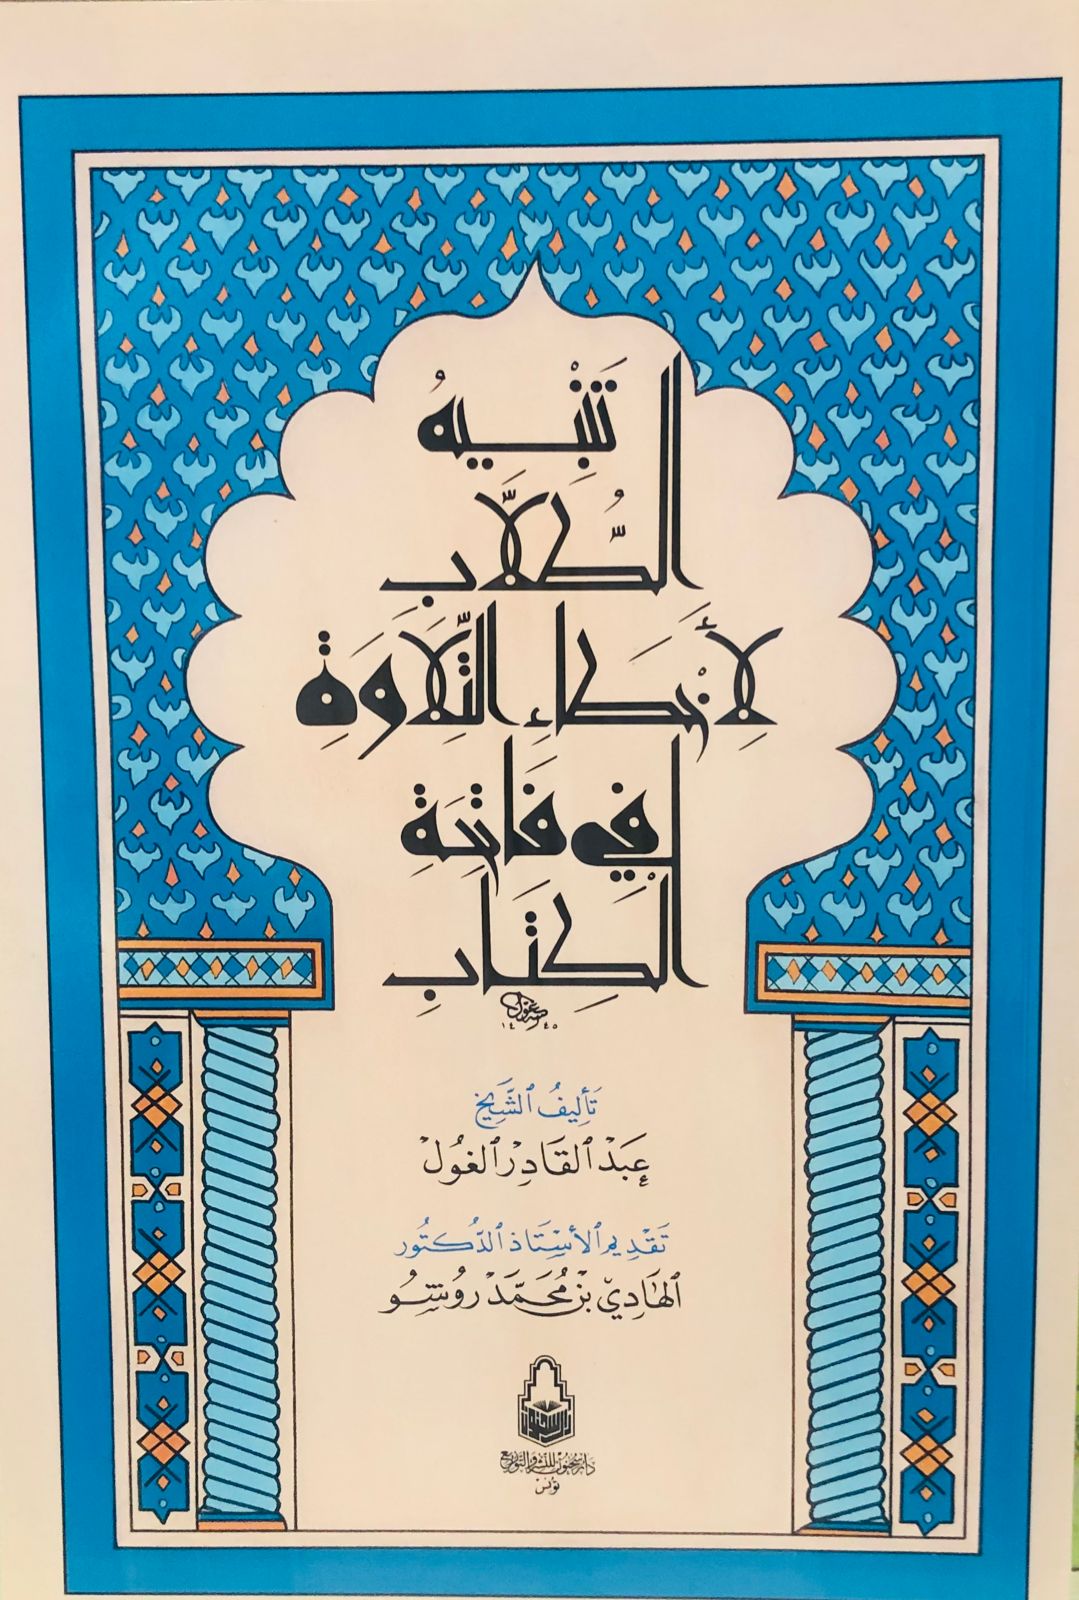 تَنْبِيهُ
الطُّلَّابِ
لِأَخْطَاءِ التِّلَاوَةِ
فِي فَاتِحَةِ
الكِتَابِ
١٤٤٥
تَأليفُ الشَّيخ
عَبْد القَادِر الغُول
تَقْدِيم الأسْتَاذ الدُّكتُور
الهَادِي بْن مُحَمَّد رُوشُو
دار سحنون
دار سحنون للنشر والتوزيع
تونس